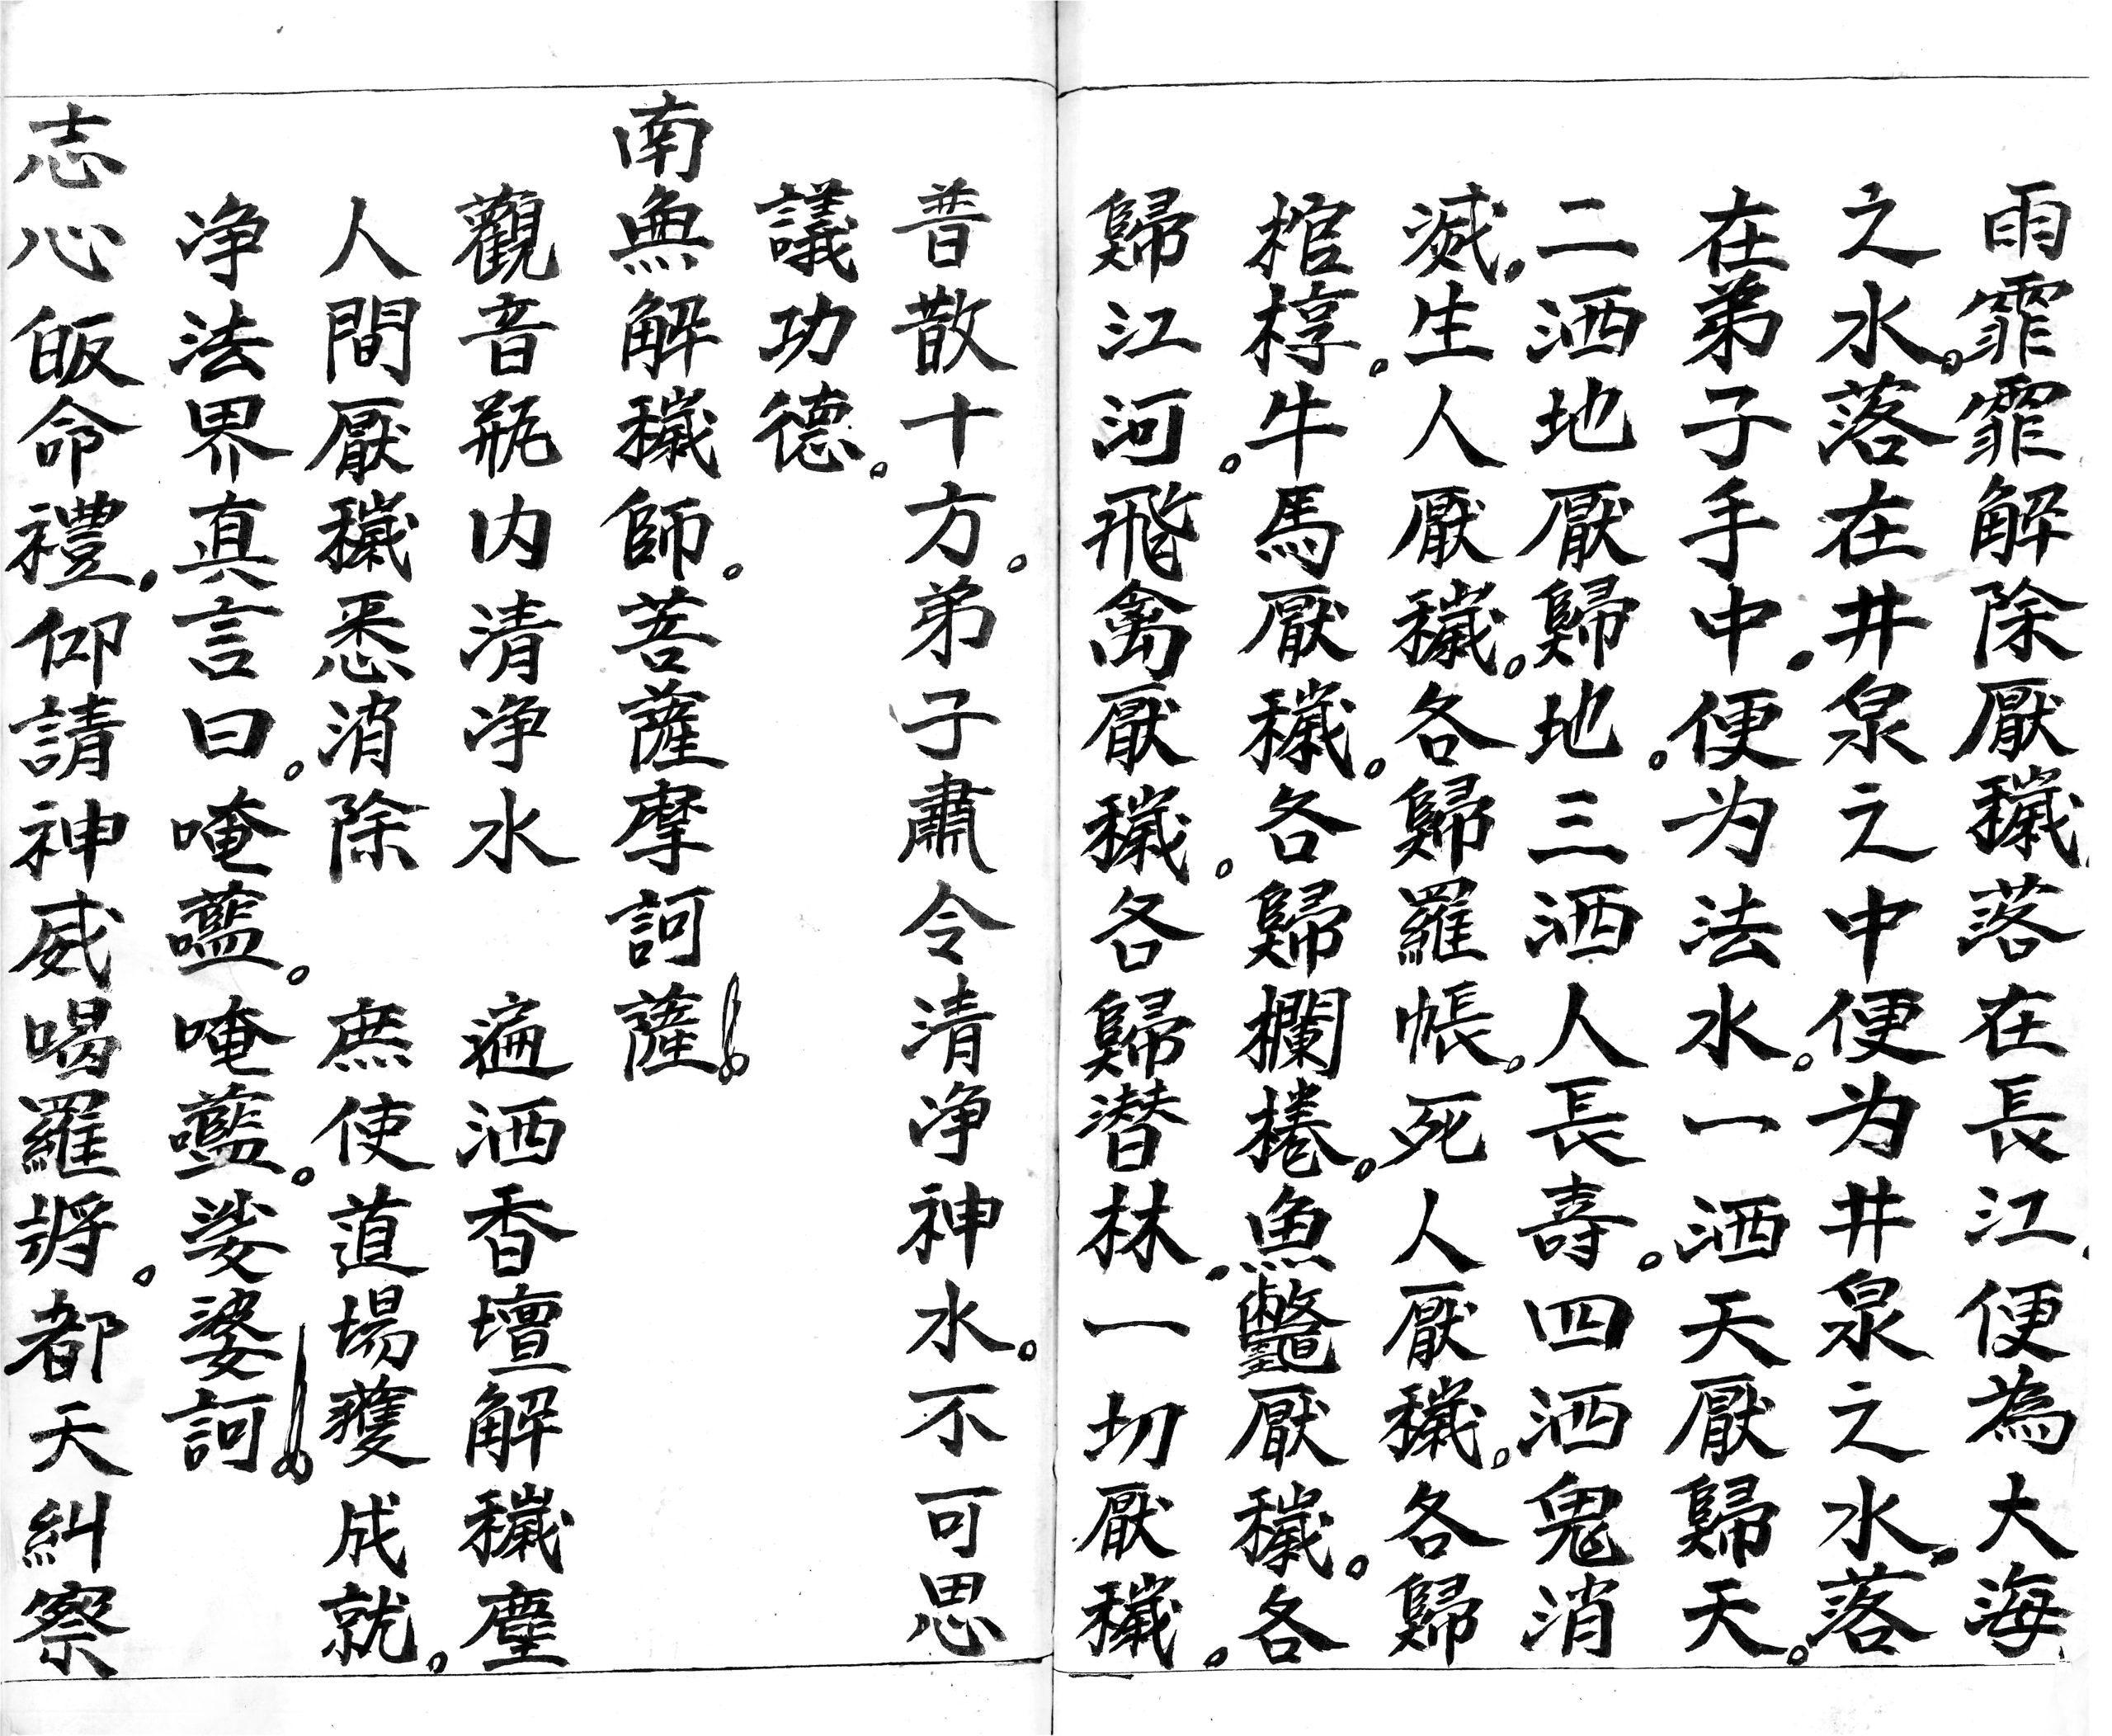 雨霏霏解除厭穢落在長江便為大海
之水。落在井泉之中便为井泉之水。落
在弟子手中。便为法水。一洒天厭歸天。
二洒地厭歸地。三洒人長壽。四洒鬼消
滅。生人厭穢。各歸羅帳。死人厭穢。各歸
棺椁。牛馬厭穢。各歸欄棬。魚鼈厭穢。各
歸江河。飛禽厭穢。各歸潜林。一切厭穢。
普散十方。弟子肅令清净神水。不可思
議功德。
南無解穢師。菩薩摩訶薩
觀音瓶内清净水　遍洒香壇解穢塵
人間厭穢悉消除　庶使道場獲成就。
净法界真言曰。唵㘕。唵㘕。娑婆訶
志心皈命禮。仰請神威喝羅将。都天糾察